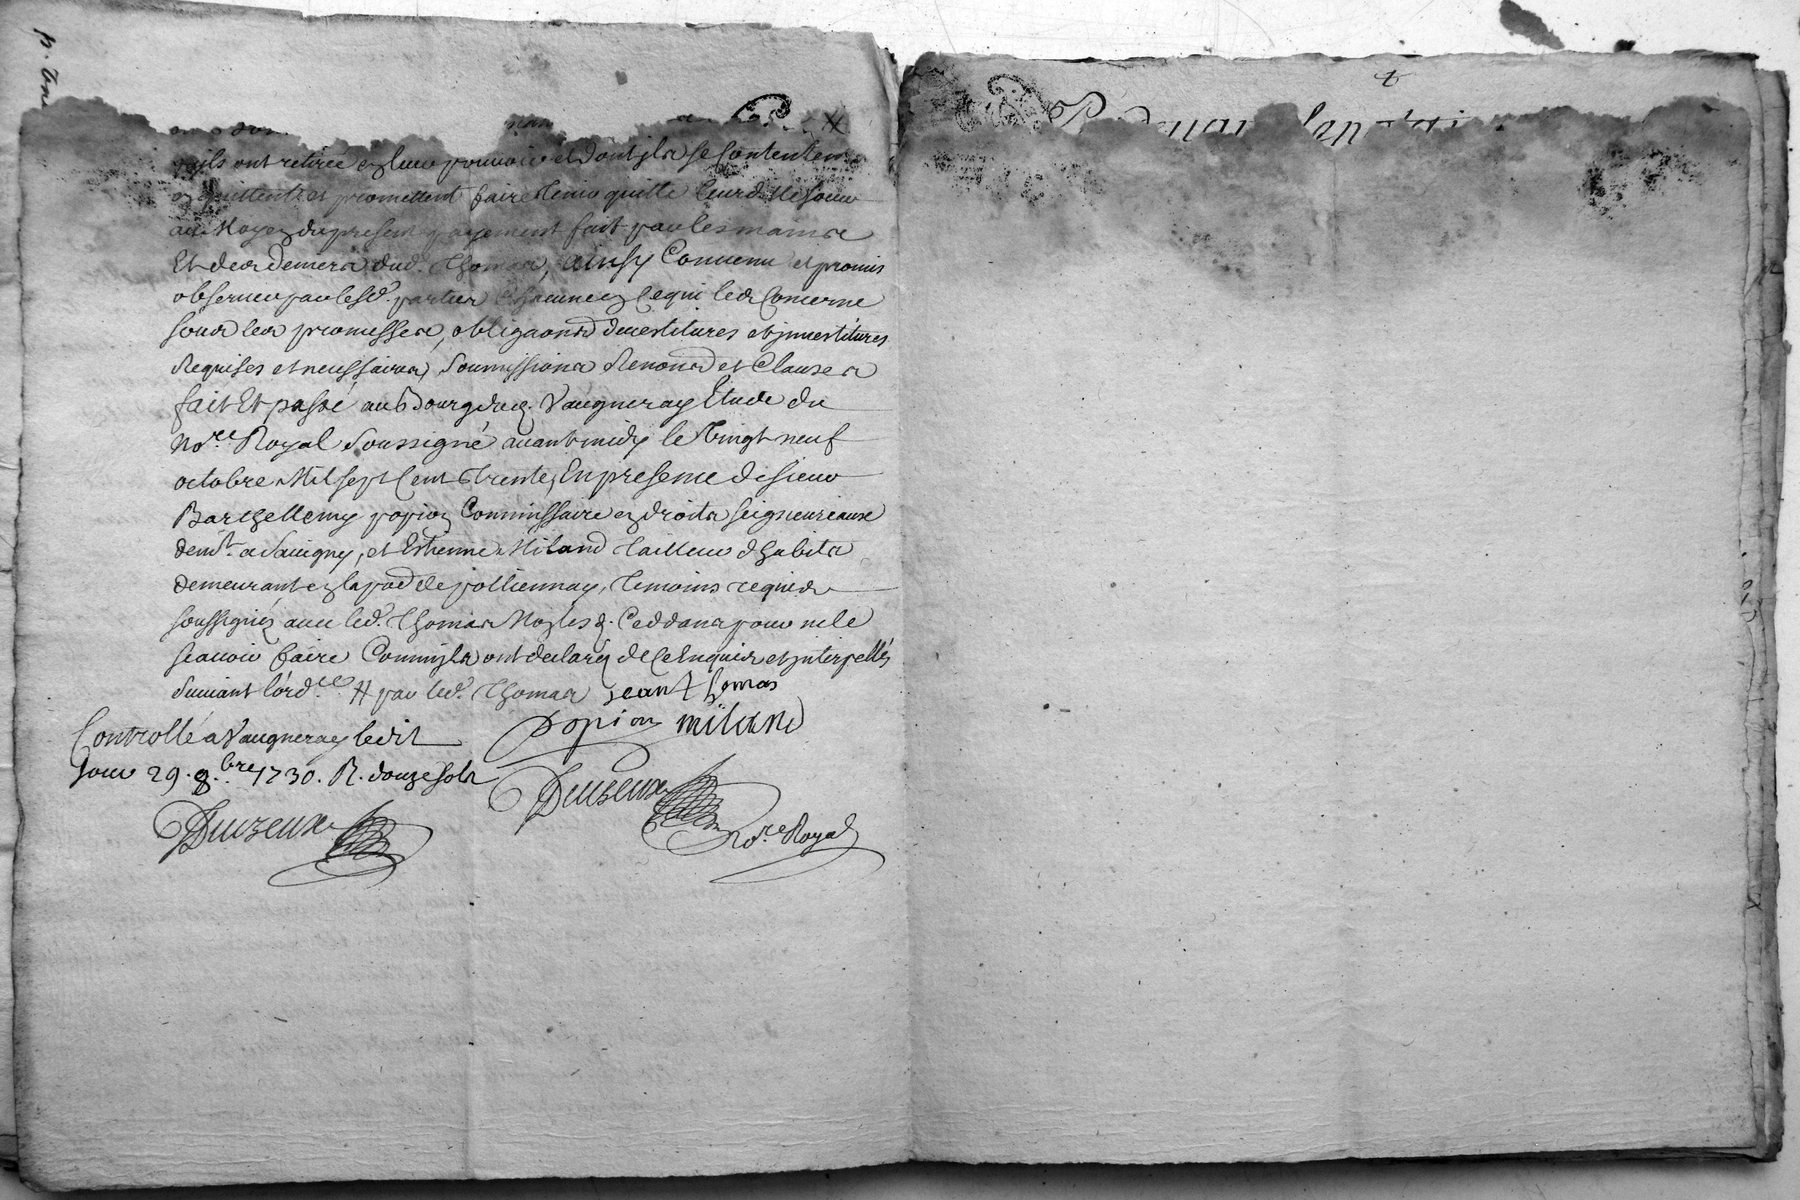 qu'ils ont retirée en leur pouvoir et dont ils se contentent
en quittent et promettent faire tenir quitte leurd. Sr
au Moyen du present payement fait par les mains
Et des deniers dud. Thomas, ainsy Convenu et promis
observer par lesd. parties Chacune en ce qui les Concerne
sous les promesses, obligaons devestitures et investitures
Requises et necessaires, soumissions Renonõns et Clauses
fait Et passé au Bourg dud. Vaugneray Etude du
No.re Royal soussigné avant midy le Vingt neuf
octobre Mil sept Cent Trente, En presence de sieur
Barthellemy popion Commissaire en droits seigneuriaux
demt. a Savigny, et Estienne Miland Tailleur d'habits
demeurant en la par. de pollionnay, Temoins requis
soussignéz avec led. Thomas Non les d. Ceddans pour ne le
sçavoir faire Comm'ils ont declaréz de Ce Enquis et interpellés
Suivant l'ord.ce # par led. Thomas jean thomas
popion miland
Controllé a Vaugneray ledit
Jour 29. 8.bre 1730. R. douze sols
No.re Royal